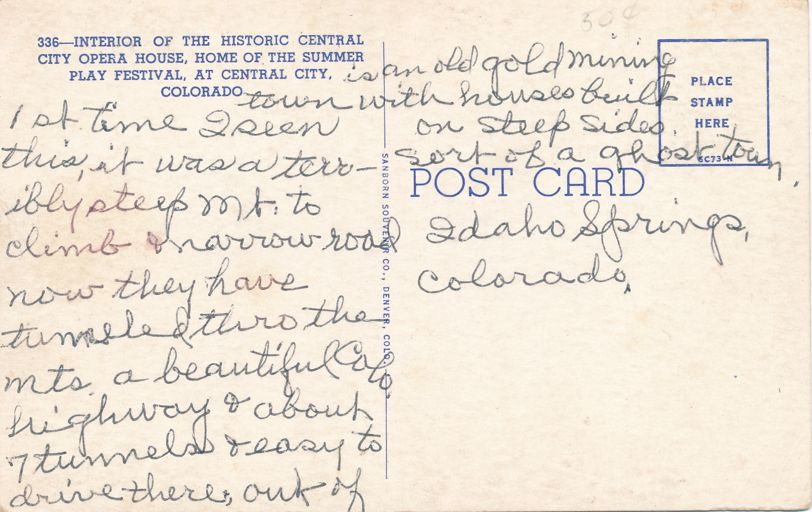 50¢
336—INTERIOR OF THE HISTORIC CENTRAL
CITY OPERA HOUSE, HOME OF THE SUMMER
PLAY FESTIVAL, AT CENTRAL CITY,
COLORADO
is an old gold mining
town with houses built
on steep sides.
sort of a ghost town.
PLACE
STAMP
HERE
6C73-N
1st time I seen
this, it was a terr-
ibly steep Mt. to
climb & narrow road
now they have
tunneled thro the
mts. a beautiful Colo.
highway & about
7 tunnels & easy to
drive there, out of
SANBORN SOUVENIR CO., DENVER, COLO.
POST CARD
Idaho Springs,
Colorado.